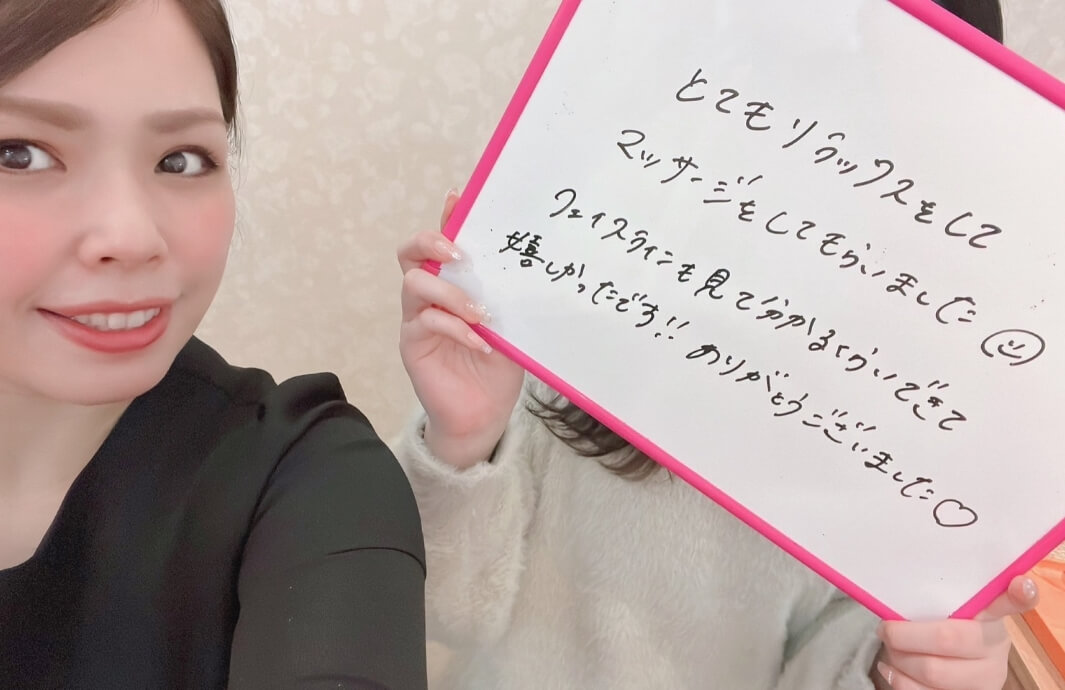 とてもリラックスをして
マッサージをしてもらいました
フェイスラインも見て分かるくらいできて
嬉しかったです!! ありがとうございました♡